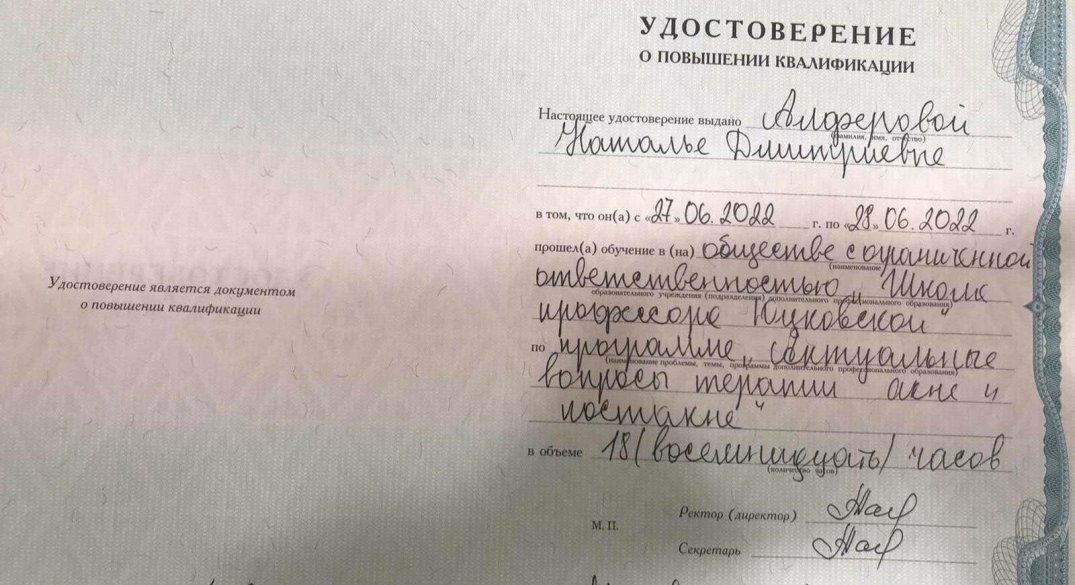 УДОСТОВЕРЕНИЕ
О ПОВЫШЕНИИ КВАЛИФИКАЦИИ
Настоящее удостоверение выдано Алферовой
(фамилия, имя, отчество)
Наталье Дмитриевне
в том, что он(а) с «27» 06.2022 г. по «28» 06.2022 г.
прошел(а) обучение в (на) обществе с ограниченной
(наименование
ответственностью „Школа
образовательного учреждения (подразделения) дополнительного профессионального образования)
профессора
по программе „актуальные
(наименование проблемы, темы, программы дополнительного профессионального образования)
вопросы терапии акне и
постакне"
в объеме 18 (восемнадцать) часов
(количество часов)
М. П.
Ректор (директор)
Секретарь
Удостоверение является документом
о повышении квалификации